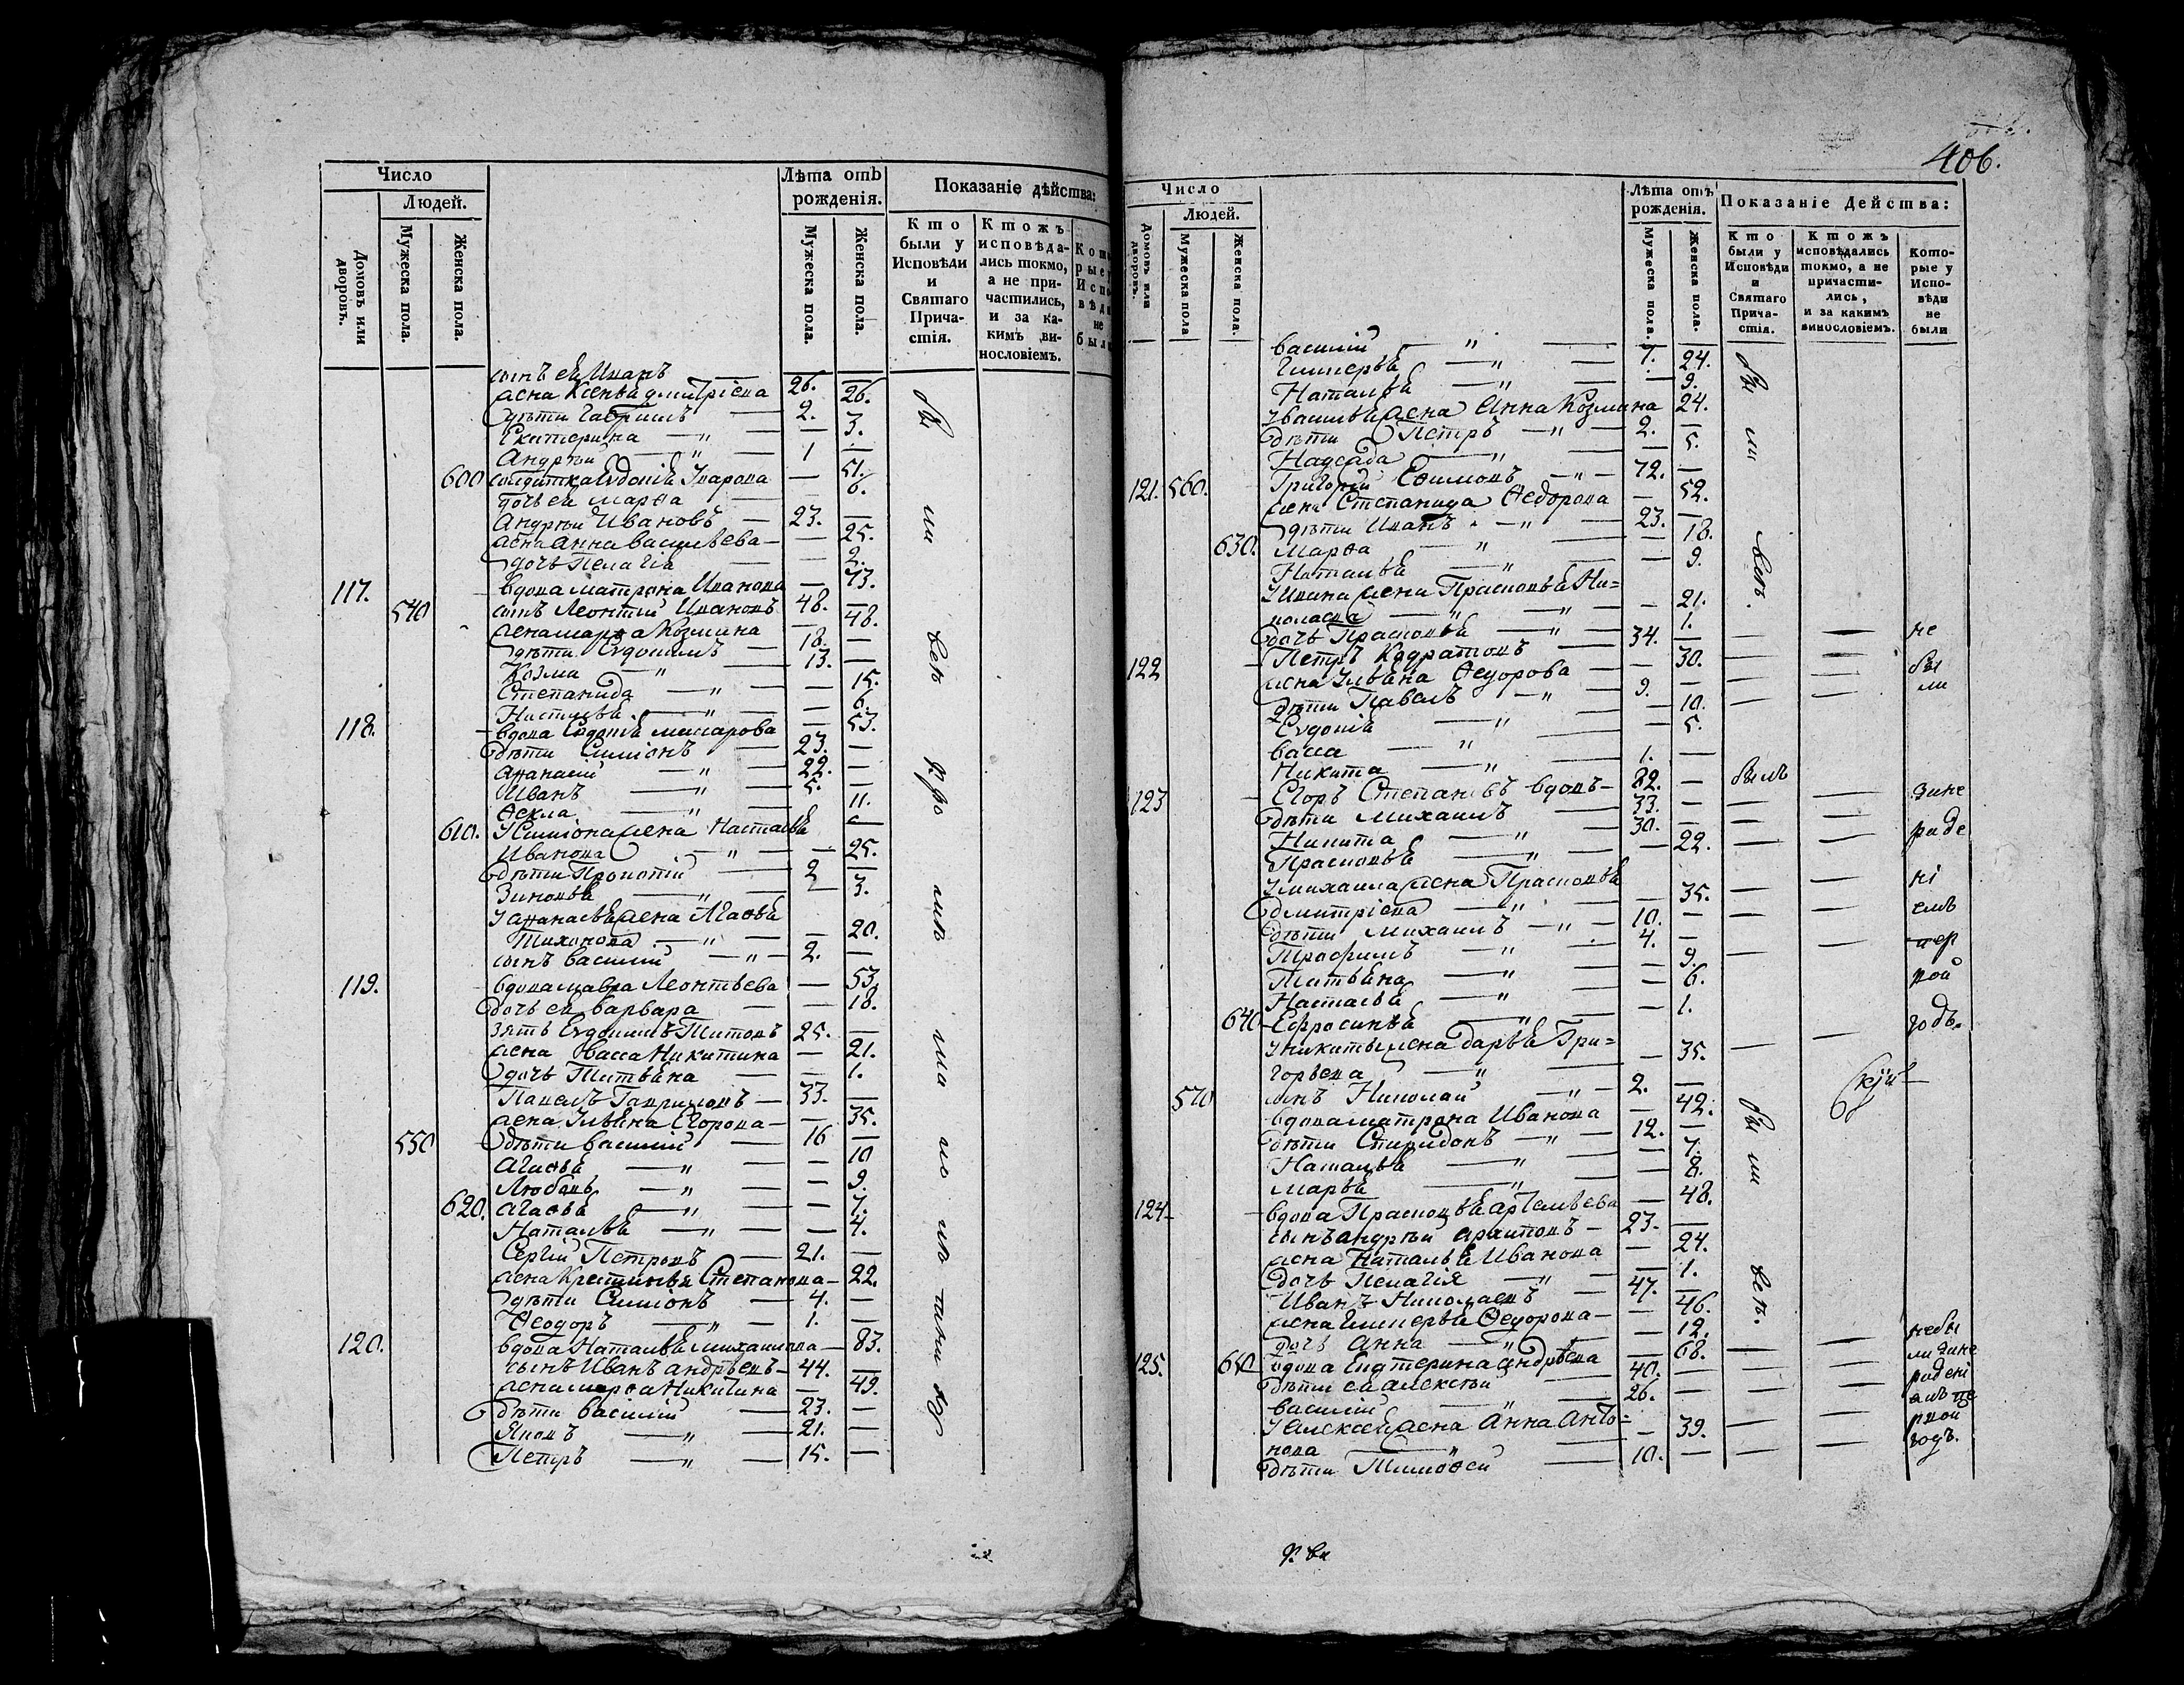 Число
Людей.
Домовъ или дворовъ.
Мужеска пола.
Женска пола.
Лѣта отъ рожденія.
Мужеска пола.
Женска пола.
Показаніе дѣйства:
Кто были у Исповѣди и Святаго Причастія.
Ктожъ исповѣдались токмо, а не причастились, и за какимъ винословіемъ.
сынъ ея Иванъ — 26. —
жена Ксенья дмитріева 26.
дѣти Гавріилъ — 2. —
Екатерина — „ — — 3.
Андрѣй — „ — 1 —
600 солдатка Евдокія Уварова — 51.
дочь ея марѳа — 6.
Андрѣй Ивановъ — 23. —
жена анна васильева — — 25.
дочь Пелагія — 2.
117. вдова матрона Иванова — 73.
540 сынъ Леонтій Ивановъ 48. —
жена марѳа Козмина — 48.
дѣти Евдокимъ — 18. —
Козма — „ — 13. —
Степанида — „ — — 15.
Настасья — „ — — 6.
118. вдова Евдокія макарова — 53.
дѣти Симіонъ — 23. —
Ананасій — „ — 22. —
Иванъ — „ — 5. —
Ѳекла — „ — 11.
610. У Симіона жена Настасья —
Иванова — „ — — 25.
дѣти Прокопій — 2 —
Зиновья — „ — — 3.
У ананасья жена Агаѳья
Тихонова — „ — — 20.
сынъ василий — „ — 2. —
119. вдова мавра Леонтьева — 53
дочь ея варвара — — 18.
зять Евдокимъ Титовъ 25. —
жена Васса Никитина — 21.
дочь Татьяна — — 1.
Павелъ Гавриловъ — 33. —
жена Ульяна Егорова — — 35.
550 дѣти василий — 16 —
Агаѳья — „ — — 10
Любовь — „ — — 9.
620. агаѳья — „ — — 7.
Наталья — „ — — 4.
Сергій Петровъ — 21. —
жена Крестинья Степанова — 22.
дѣти Симіонъ — 4. —
Ѳеодоръ — „ — 1. —
120. вдова Наталья михаилова — 83.
сынъ Иванъ андрѣевъ — 44. —
жена марѳа Никитина — 49.
дѣти василий — 23. —
Яковъ — „ — 21. —
Петръ — „ — 15. —
бы
ли
всѣ
406.
Число
Людей.
Домовъ или дворовъ.
Мужеска пола
Женска пола.
Лѣта отъ рожденія.
Мужеска пола.
Женска пола.
Показаніе Действа:
Кто были у Исповѣди и Святаго Причастія.
Ктожъ исповѣдались токмо, а не причастились, и за какимъ винословіемъ.
Которые у Исповѣди не были
василий — „ — 7. —
Гликерья — „ — 24.
Наталья — „ — — 9.
У василья жена Анна Козмина 24.
дѣти Петръ — „ — 2. —
Надежда — „ — — 5.
121. 560. Григорій Ефимовъ — „ — 72. —
жена Степанида Ѳедорова — 52.
дѣти Иванъ — „ — 23. —
630. Марѳа — „ — — 18.
Наталья — „ — — 9.
У Ивана жена Прасковья Ни=
колаева — „ — „ — — 21.
дочь Прасковья — „ — 1.
122 Петръ Кодратовъ — 34. —
жена Ульяна Ѳедорова — — 30.
дѣти Павелъ — „ — 9. —
Евдокія — „ — — 10.
васса — „ — — 5.
Никита — „ — 1. —
не
бы
ли
123 Егоръ Степановъ вдовъ — 82. — былъ
дѣти Михаилъ — 33. —
Никита — „ — 30. —
Прасковья — „ — — 22.
У михаила жена Прасковья
дмитріева — „ — — 35.
дѣти Михаилъ — „ — 10. —
Трофимъ — „ 4. —
Татьяна — „ — 9.
Настасья — „ — — 6.
640 Ефросинья — „ — — 1.
У никиты жена дарья Гри=
горьева — „ — — 35.
570 сынъ Николай — „ — 2. —
вдова матрона Иванова — 42.
дѣти Спиридонъ — „ — 12. —
Наталья — „ — — 7.
марья — „ — 8.
124 вдова Прасковья артемьева — 48.
сынъ андрѣй архиповъ — 23. —
жена Наталья Иванова — 24.
дочь Пелагія — „ — — 1.
Иванъ Николаевъ — 47. —
жена Гликерья Ѳедорова — — 46.
дочь Анна — „ — — 12.
125. вдова Екатерина андрѣева — 68.
дѣти ея алексѣй — 40. —
василий — 26. —
У алексѣя жена Анна Анто=
нова — „ — 39.
дѣти Тимоѳей — 10. —
зане
раде
ні
емъ
пер
вой
годъ.
бы
ли
всѣ.
небы
ли зане
радені
емъ пе
рвой
годъ.